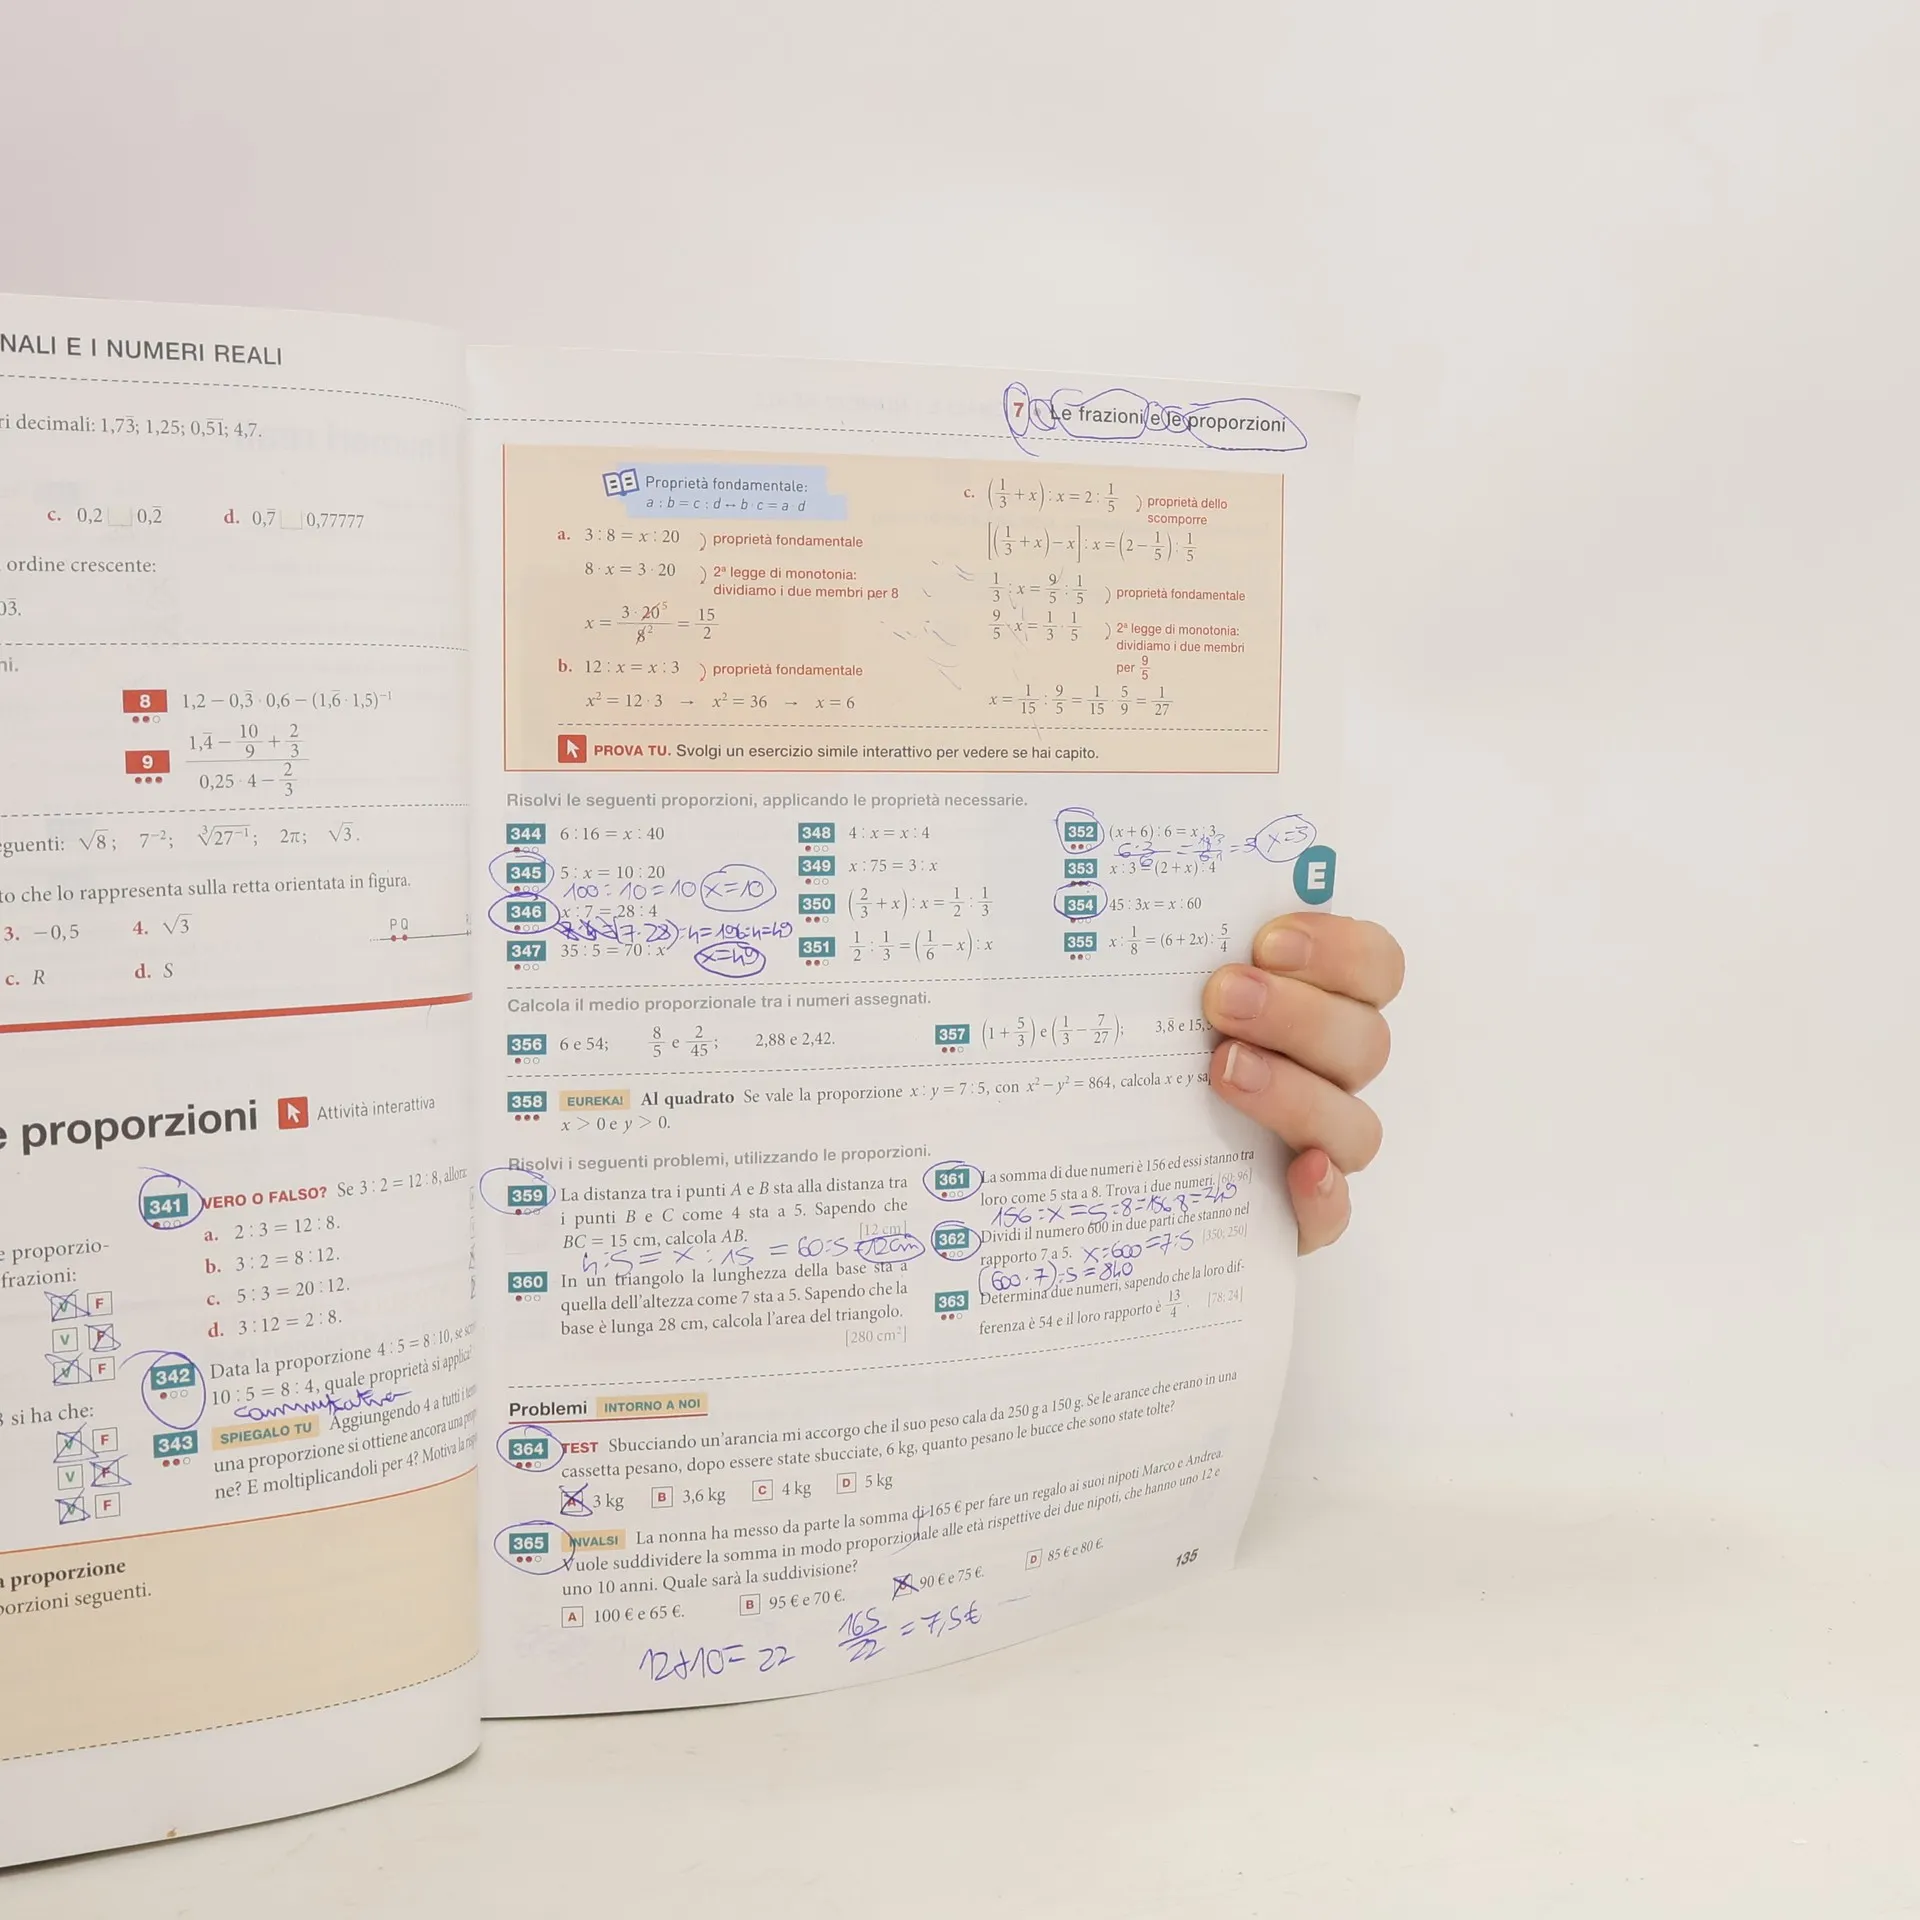 NALI E I NUMERI REALI
ri decimali: 1,73̅; 1,25; 0,5̅1̅; 4,7.
c. 0,2 □ 0,2̅ d. 0,7̅ □ 0,77777
ordine crescente:
03̅.
ni.
8 1,2 − 0,3̅ · 0,6 − (1,6̅ · 1,5)⁻¹
9 (1,4̅ − 10/9 + 2/3) / (0,25 · 4 − 2/3)
eguenti: √8; 7⁻²; ∛27⁻¹; 2π; √3.
to che lo rappresenta sulla retta orientata in figura.
3. −0,5 4. √3 P Q
c. R d. S
e proporzioni Attività interattiva
341 VERO O FALSO? Se 3 : 2 = 12 : 8, allora:
a. 2 : 3 = 12 : 8.
e proporzio- b. 3 : 2 = 8 : 12.
frazioni: c. 5 : 3 = 20 : 12.
V F d. 3 : 12 = 2 : 8.
V F
V F
342 Data la proporzione 4 : 5 = 8 : 10, se
10 : 5 = 8 : 4, quale proprietà si applica?
commutativa
si ha che:
V F
V F
V F
343 SPIEGALO TU Aggiungendo 4 a tutti i
una proporzione si ottiene ancora una
ne? E moltiplicandoli per 4? Motiva la
a proporzione
porzioni seguenti.
7 Le frazioni e le proporzioni
Proprietà fondamentale:
a : b = c : d ↔ b · c = a · d
a. 3 : 8 = x : 20 ) proprietà fondamentale
8 · x = 3 · 20 ) 2ª legge di monotonia:
dividiamo i due membri per 8
x = 3 · 20⁵ / 8² = 15/2
b. 12 : x = x : 3 ) proprietà fondamentale
x² = 12 · 3 → x² = 36 → x = 6
c. (1/3 + x) : x = 2 : 1/5 ) proprietà dello
scomporre
[(1/3 + x) − x] : x = (2 − 1/5) : 1/5
1/3 : x = 9/5 : 1/5 ) proprietà fondamentale
9/5 · x = 1/3 · 1/5 ) 2ª legge di monotonia:
dividiamo i due membri
per 9/5
x = 1/15 : 9/5 = 1/15 · 5/9 = 1/27
PROVA TU. Svolgi un esercizio simile interattivo per vedere se hai capito.
Risolvi le seguenti proporzioni, applicando le proprietà necessarie.
344 6 : 16 = x : 40
345 5 : x = 10 : 20
100 : 10 = 10 x=10
346 x : 7 = 28 : 4
(7·28):4=196:4=49
347 35 : 5 = 70 : x
x=49
348 4 : x = x : 4
349 x : 75 = 3 : x
350 (2/3 + x) : x = 1/2 : 1/3
351 1/2 : 1/3 = (1/6 − x) : x
352 (x + 6) : 6 = x : 3
6·3/6 = = 3 x=3
353 x : 3 = (2 + x) : 4
354 45 : 3x = x : 60
355 x : 1/8 = (6 + 2x) : 5/4
E
Calcola il medio proporzionale tra i numeri assegnati.
356 6 e 54; 8/5 e 2/45; 2,88 e 2,42.
357 (1 + 5/3) e (1/3 − 7/27); 3,8̅ e 15,
358 EUREKA! Al quadrato Se vale la proporzione x : y = 7 : 5, con x² − y² = 864, calcola x e y
x > 0 e y > 0.
Risolvi i seguenti problemi, utilizzando le proporzioni.
359 La distanza tra i punti A e B sta alla distanza tra
i punti B e C come 4 sta a 5. Sapendo che
BC = 15 cm, calcola AB. [12 cm]
4:5 = x : 15 = 60:5 = 12cm
360 In un triangolo la lunghezza della base sta a
quella dell'altezza come 7 sta a 5. Sapendo che la
base è lunga 28 cm, calcola l'area del triangolo.
[280 cm²]
361 La somma di due numeri è 156 ed essi stanno tra
loro come 5 sta a 8. Trova i due numeri. [60; 96]
156:x=5:8=156·8=249
362 Dividi il numero 600 in due parti che stanno nel
rapporto 7 a 5. x:600=7:5 [350; 250]
(600·7):5=840
363 Determina due numeri, sapendo che la loro dif-
ferenza è 54 e il loro rapporto è 13/4. [78; 24]
Problemi INTORNO A NOI
364 TEST Sbucciando un'arancia mi accorgo che il suo peso cala da 250 g a 150 g. Se le arance che erano in una
cassetta pesano, dopo essere state sbucciate, 6 kg, quanto pesano le bucce che sono state tolte?
A 3 kg B 3,6 kg C 4 kg D 5 kg
365 INVALSI La nonna ha messo da parte la somma di 165 € per fare un regalo ai suoi nipoti Marco e Andrea.
Vuole suddividere la somma in modo proporzionale alle età rispettive dei due nipoti, che hanno uno 12 e
uno 10 anni. Quale sarà la suddivisione?
A 100 € e 65 €. B 95 € e 70 €. C 90 € e 75 €. D 85 € e 80 €.
12+10=22 165/22 = 7,5€
135